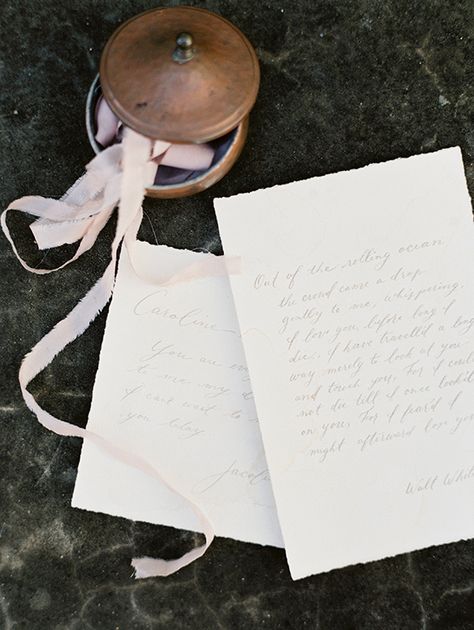 Caroline
You are eve
to me, my d
I can't wait to
you today.
Jacob
Out of the rolling ocean
the crowd came a drop
gently to me, whispering,
I love you, before long I
die. I have travell'd a long
way, merely to look at you
and touch you. For I could
not die till I once look'd
on you, For I fear'd I
might afterward lose you
Walt Whit